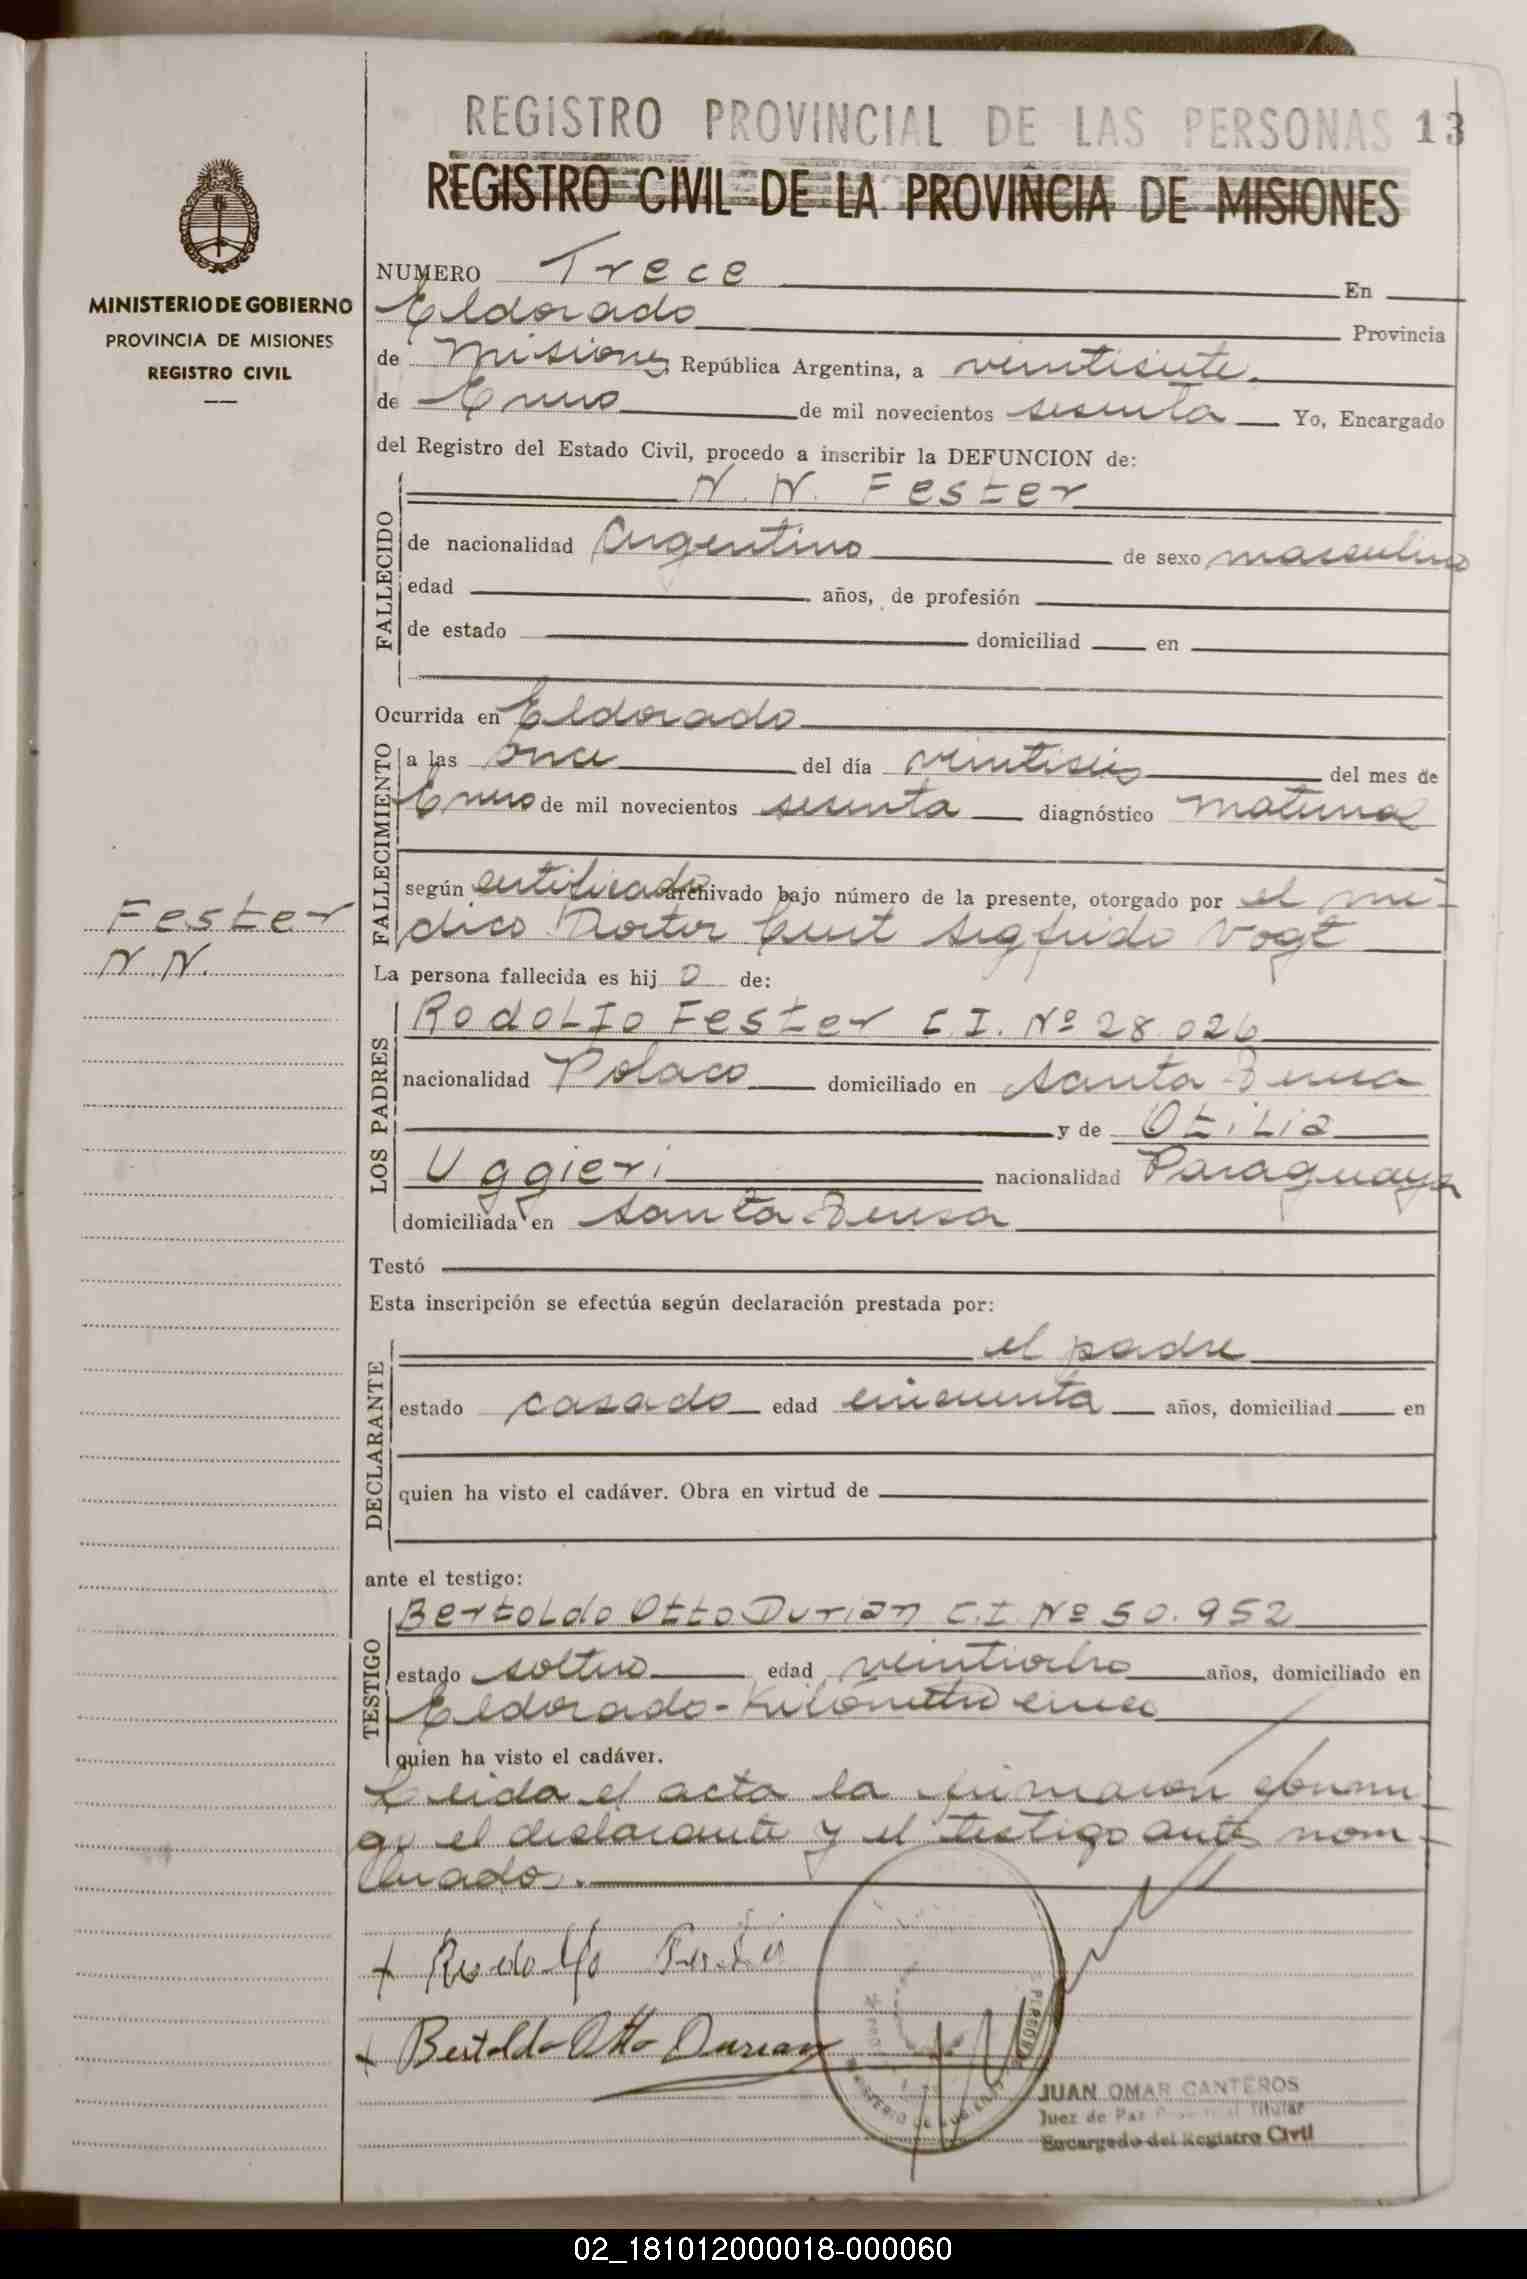 REGISTRO PROVINCIAL DE LAS PERSONAS 13
REGISTRO CIVIL DE LA PROVINCIA DE MISIONES
MINISTERIO DE GOBIERNO
PROVINCIA DE MISIONES
REGISTRO CIVIL
NUMERO Trece En
Eldorado Provincia
de Misiones, República Argentina, a veintisiete
de Enero de mil novecientos sesenta Yo, Encargado
del Registro del Estado Civil, procedo a inscribir la DEFUNCION de:
N. N. Fester
FALLECIDO
de nacionalidad Argentino de sexo masculino
edad años, de profesión
de estado domiciliad en
Ocurrida en Eldorado
FALLECIMIENTO
a las once del día veintiseis del mes de
Enero de mil novecientos sesenta diagnóstico
según certificado archivado bajo número de la presente, otorgado por el mé-
dico Doctor Curt Sigfrido Vogt
Fester
N.N.
La persona fallecida es hij o de:
LOS PADRES
Rodolfo Fester C.I. Nº 28.026
nacionalidad Polaco domiciliado en Santa
y de Otilia
Uggieri nacionalidad Paraguaya
domiciliada en Santa
Testó
Esta inscripción se efectúa según declaración prestada por:
DECLARANTE
el padre
estado casado edad cincuenta años, domiciliad en
quien ha visto el cadáver. Obra en virtud de
ante el testigo:
TESTIGO
Bertoldo Otto Durian C.I. Nº 50.952
estado soltero edad veintiocho años, domiciliado en
Eldorado-Kilómetro cinco
quien ha visto el cadáver.
Leida el acta la firmaron conmi-
go el declarante y el testigo antes nom-
brado.
+ Rodolfo Fester
+ Bertoldo Otto Durian
JUAN OMAR CANTEROS
Juez de Paz Titular
Encargado del Registro Civil
02_181012000018-000060